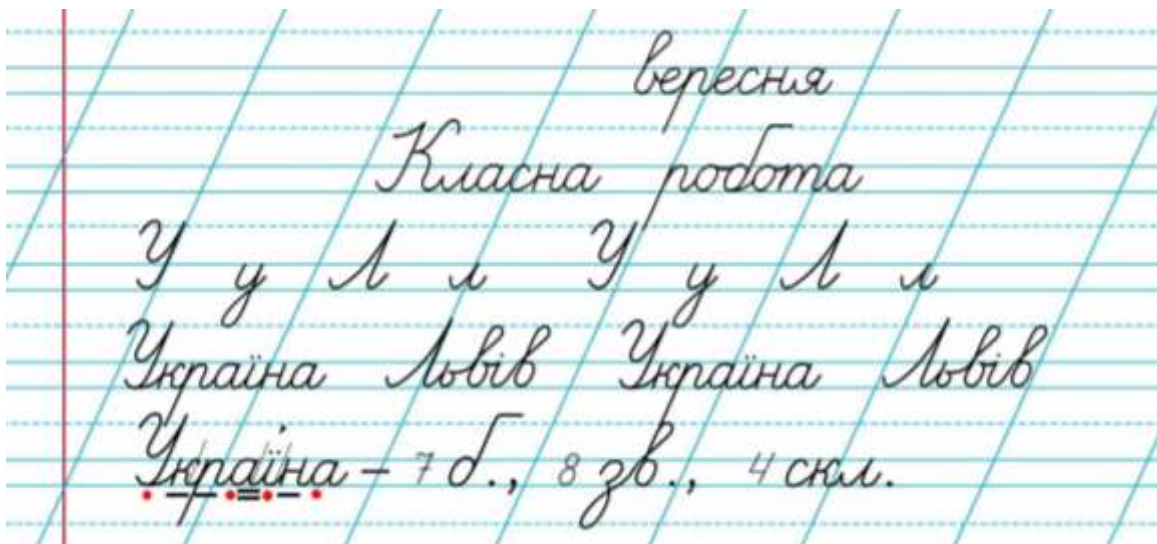 вересня
Класна робота
У у Л л У у Л л
Україна Львів Україна Львів
Україна – 7 б., 8 зв., 4 скл.